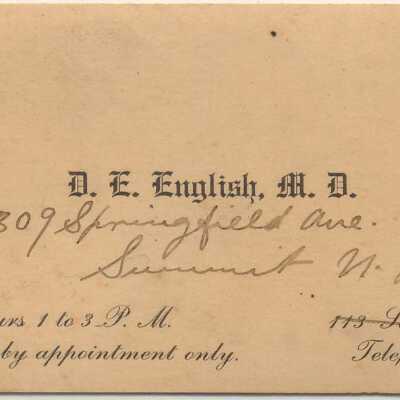 D. E. English, M. D.
309 Springfield Ave.
Summit N.
1 to 3 P. M.
by appointment only.
113